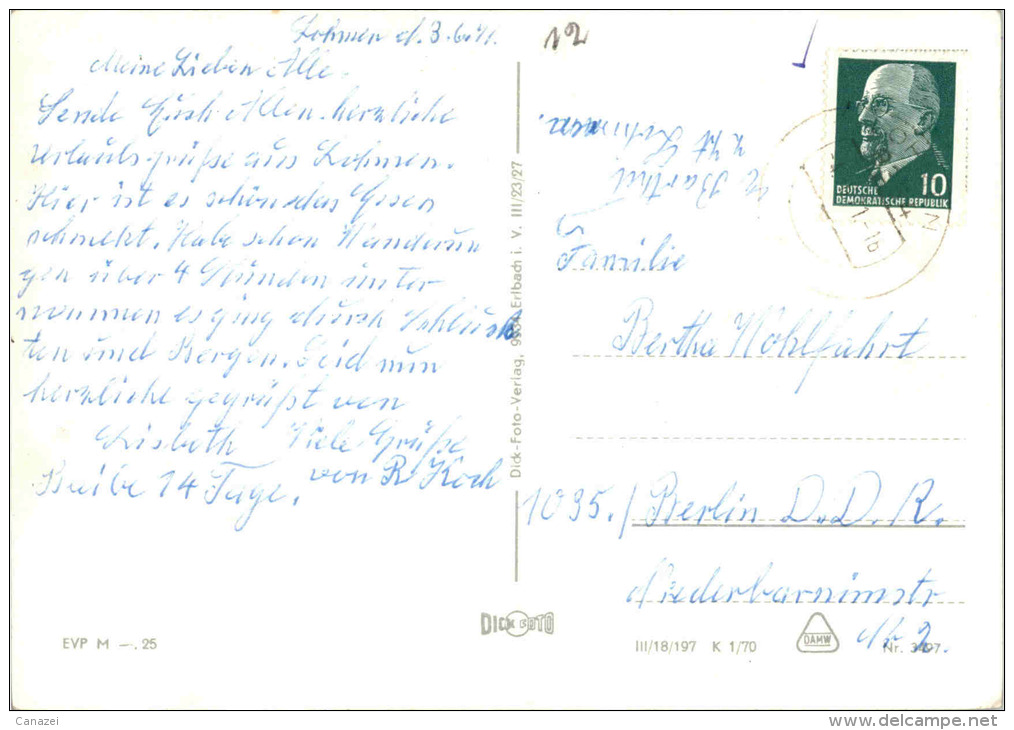 Lohmen d. 3.6.71.
Meine Lieben Alle.
Sende Euch Allen herzliche
Urlaubsgrüße aus Lohmen.
Hier ist es schön das Essen
schmekt. Habe schon Wanderun
gen über 4 Stunden unter
nommen es ging durch Schluch
ten und Bergen. Seid nun
herzliche gegrüßt von
Lisbeth Viele Grüße
von R Koch
Bleibe 14 Tage.
Dick-Foto-Verlag, 9934 Erlbach i. V. III/23/27
EVP M —.25
12
Barthel
Lohmen.
DEUTSCHE
DEMOKRATISCHE REPUBLIK
10
Familie
Bertha Wohlfahrt
1035./Berlin D.D.R.
Niederbarnimstr
Nr 2.
DICK FOTO
III/18/197 K 1/70
DAMW
Nr. 3497
Canazei
http://www.delcampe.net